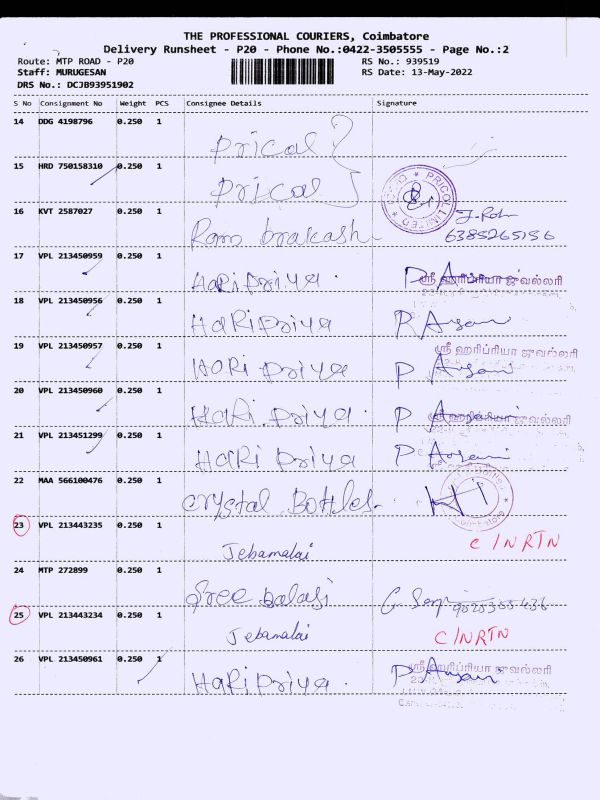 THE PROFESSIONAL COURIERS, Coimbatore
Delivery Runsheet - P20 - Phone No.:0422-3505555 - Page No.:2
Route: MTP ROAD - P20 RS No.: 939519
Staff: MURUGESAN RS Date: 13-May-2022
DRS No.: DCJB93951902
S No Consignment No Weight PCS Consignee Details Signature
14 DDG 4198796 0.250 1 Prical
15 HRD 750158310 0.250 1 Prical PRICOL LIMITED
16 KVT 2587027 0.250 1 Ram brakash 6385265156
17 VPL 213450959 0.250 1 HaRi priya ஸ்ரீ ஹரிப்ரியா ஜுவல்லரி
18 VPL 213450956 0.250 1 HaRi priya
19 VPL 213450957 0.250 1 HaRi priya ஸ்ரீ ஹரிப்ரியா ஜுவல்லரி
20 VPL 213450960 0.250 1 HaRi priya ஸ்ரீ ஹரிப்ரியா ஜுவல்லரி
21 VPL 213451299 0.250 1 HaRi priya
22 MAA 566100476 0.250 1 Crystal Bottles
23 VPL 213443235 0.250 1 Jebamalai C/NRTN
24 MTP 272899 0.250 1 Sree balaji
25 VPL 213443234 0.250 1 Jebamalai C/NRTN
26 VPL 213450961 0.250 1 HaRi priya ஸ்ரீ ஹரிப்ரியா ஜுவல்லரி